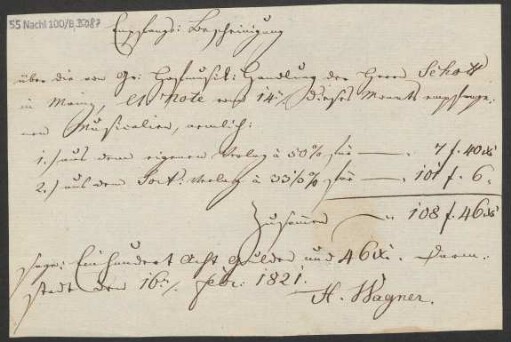 55 Nachl 100/B,35087
Empfangs: Bescheinigung
über die von Gr: Hofmusik: Handlung der Herrn Schott
in Mainz, Nota vom 14n dieses Monats empfange-
nen Musicalien, nemlich:
1.) aus dem eigenen Verlag à 50% für — 7 f. 40 x
2.) aus dem Sort: Verlag à 33⅓% für — 101 f. 6 "
Zusammen — 108 f. 46 x
sage: Ein hundert Acht Gulden und 46 x. Darm-
stadt den 16n Febr: 1821.
H. Wagner.